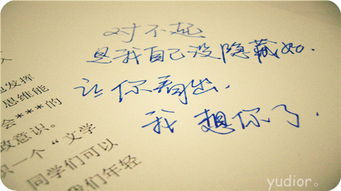 对不起
是我自己没隐藏好.
让你看出.
我想你了.
包发挥
思维能
会***的
政意识。
识一个“文学
同学们可以
我们年轻
yudior。